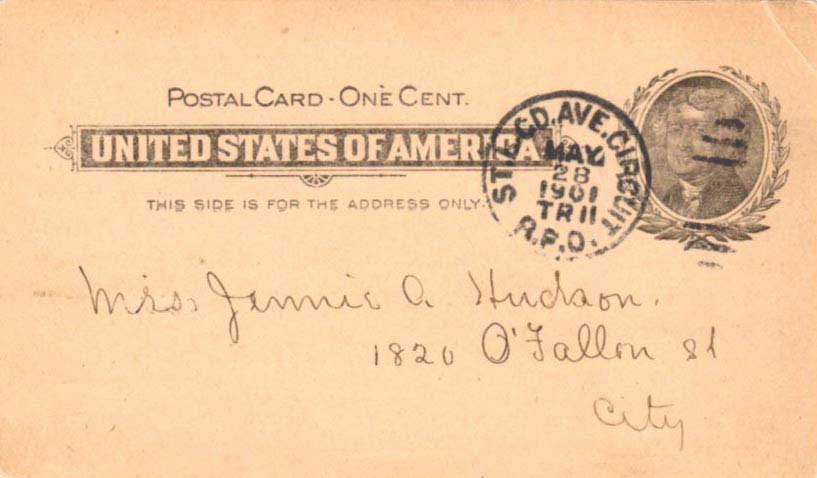 POSTAL CARD - ONE CENT.
UNITED STATES OF AMERICA
THIS SIDE IS FOR THE ADDRESS ONLY.
AVE. CIRCUIT
MAY
28
1901
TR 11
R.P.O.
Miss Jennie A. Hudson.
1820 O'Fallon St
City